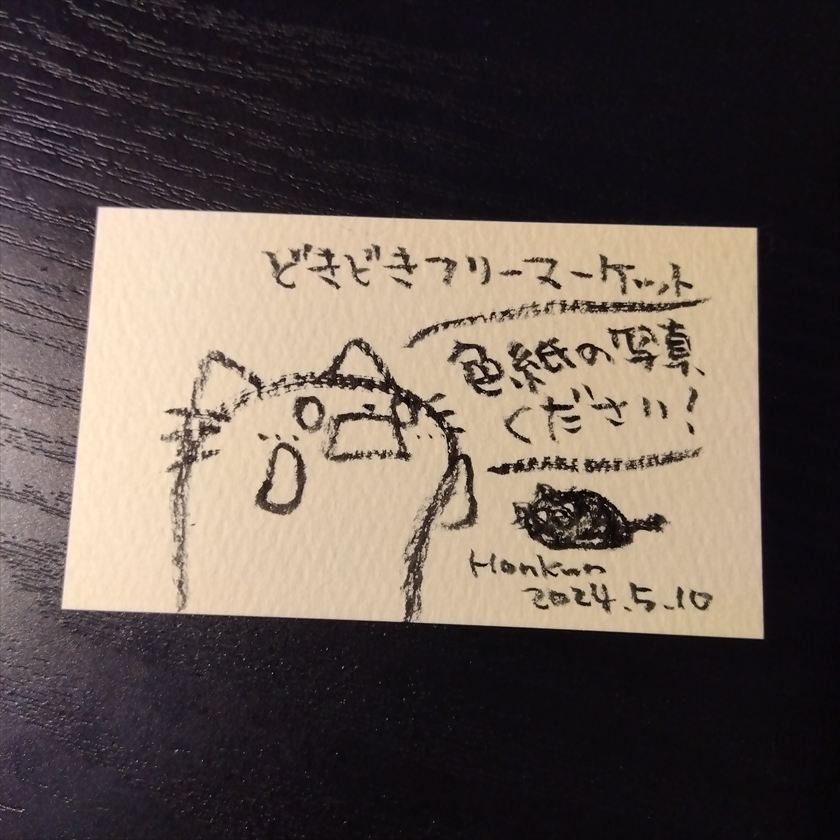 どきどきフリーマーケット
色紙の写真
ください!
Honkun
2024.5.10